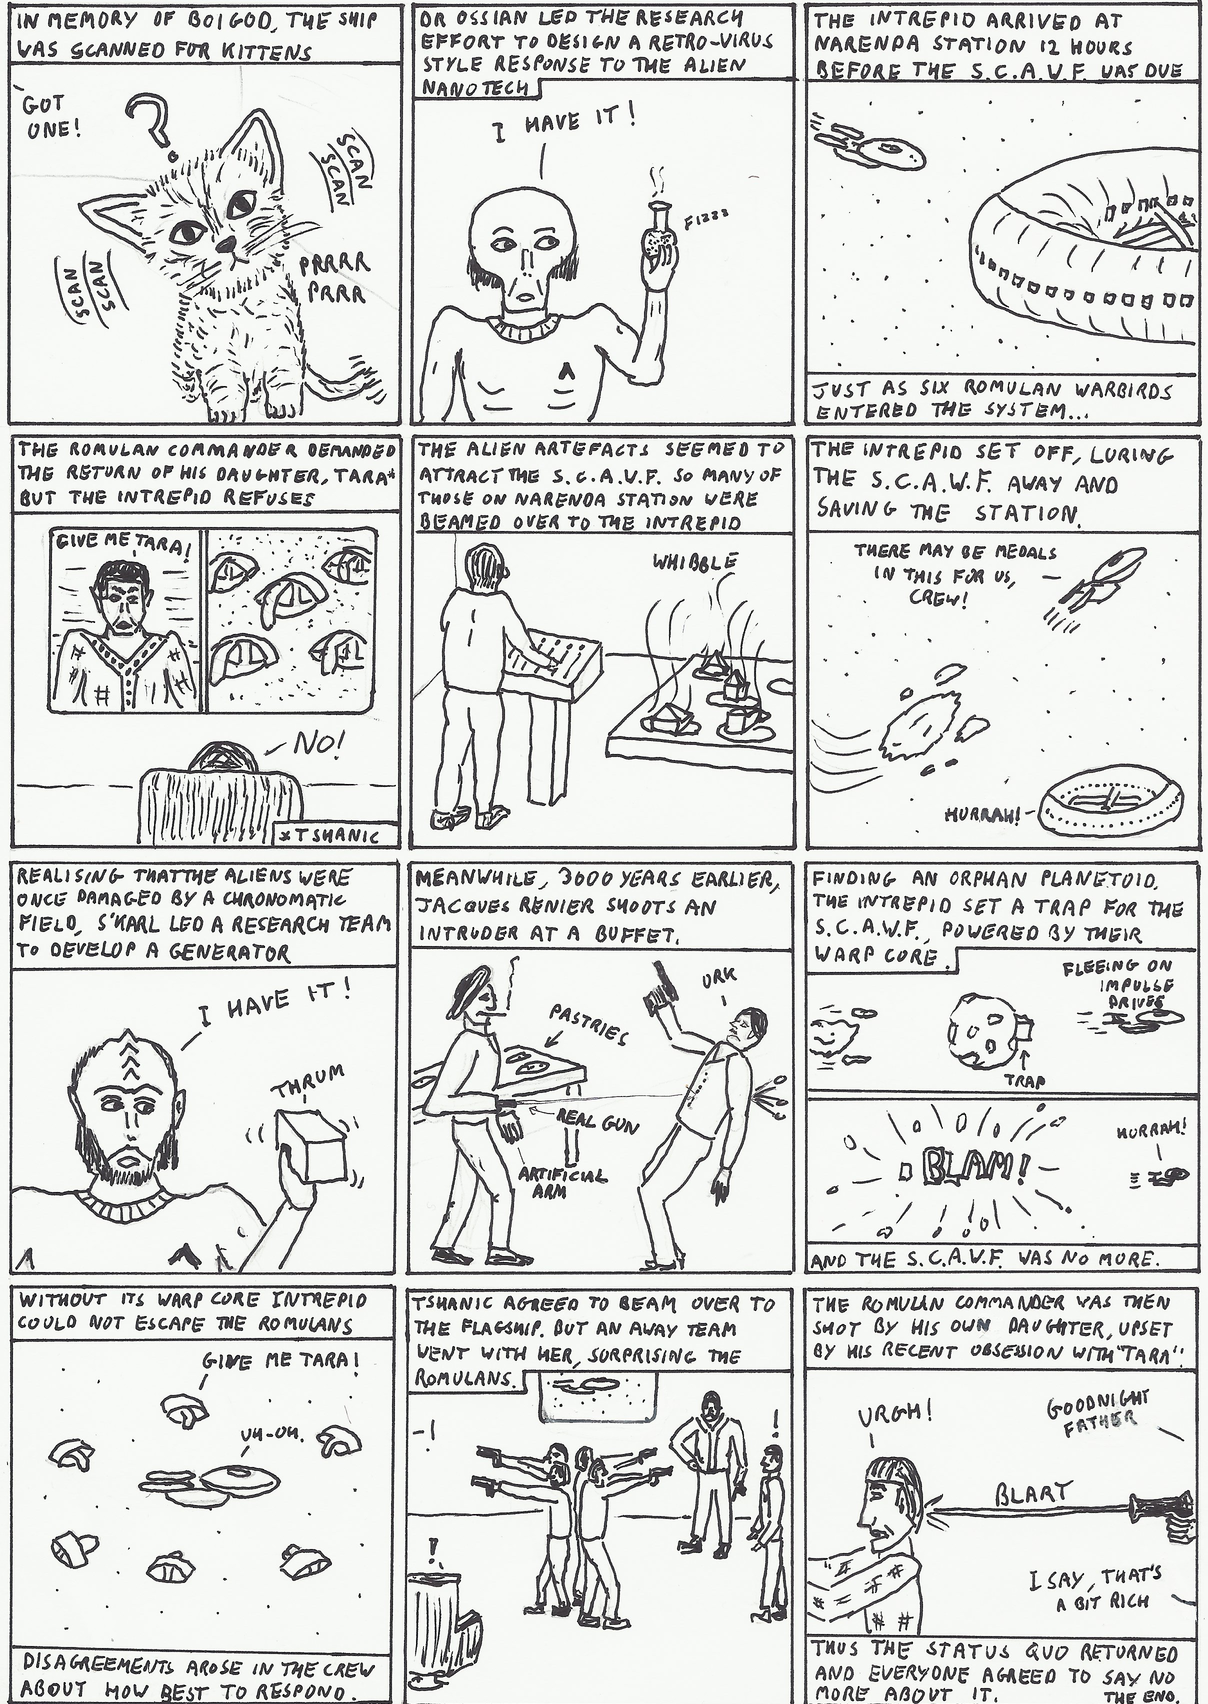 IN MEMORY OF BOIGOD, THE SHIP
WAS SCANNED FOR KITTENS
GOT
ONE!
?
SCAN
SCAN
SCAN
SCAN
PRRRR
PRRR
DR OSSIAN LED THE RESEARCH
EFFORT TO DESIGN A RETRO-VIRUS
STYLE RESPONSE TO THE ALIEN
NANOTECH
I HAVE IT!
FIZZZ
THE INTREPID ARRIVED AT
NARENDA STATION 12 HOURS
BEFORE THE S.C.A.W.F. WAS DUE
JUST AS SIX ROMULAN WARBIRDS
ENTERED THE SYSTEM...
THE ROMULAN COMMANDER DEMANDED
THE RETURN OF HIS DAUGHTER, TARA*
BUT THE INTREPID REFUSES
GIVE ME TARA!
NO!
*TSHANIC
THE ALIEN ARTEFACTS SEEMED TO
ATTRACT THE S.C.A.W.F. SO MANY OF
THOSE ON NARENDA STATION WERE
BEAMED OVER TO THE INTREPID
WHIBBLE
THE INTREPID SET OFF, LURING
THE S.C.A.W.F. AWAY AND
SAVING THE STATION.
THERE MAY BE MEDALS
IN THIS FOR US,
CREW!
HURRAH!
REALISING THAT THE ALIENS WERE
ONCE DAMAGED BY A CHRONOMATIC
FIELD, S'KARL LED A RESEARCH TEAM
TO DEVELOP A GENERATOR
I HAVE IT!
THRUM
MEANWHILE, 3000 YEARS EARLIER,
JACQUES RENIER SHOOTS AN
INTRUDER AT A BUFFET.
URK
PASTRIES
REAL GUN
ARTIFICIAL
ARM
FINDING AN ORPHAN PLANETOID,
THE INTREPID SET A TRAP FOR THE
S.C.A.W.F., POWERED BY THEIR
WARP CORE.
FLEEING ON
IMPULSE
DRIVES
TRAP
BLAM!
HURRAH!
AND THE S.C.A.W.F. WAS NO MORE.
WITHOUT ITS WARP CORE INTREPID
COULD NOT ESCAPE THE ROMULANS
GIVE ME TARA!
UH-OH.
DISAGREEMENTS AROSE IN THE CREW
ABOUT HOW BEST TO RESPOND.
TSHANIC AGREED TO BEAM OVER TO
THE FLAGSHIP. BUT AN AWAY TEAM
WENT WITH HER, SURPRISING THE
ROMULANS.
-!
!
!
THE ROMULAN COMMANDER WAS THEN
SHOT BY HIS OWN DAUGHTER, UPSET
BY HIS RECENT OBSESSION WITH "TARA".
URGH!
GOODNIGHT
FATHER
BLART
I SAY, THAT'S
A BIT RICH
THUS THE STATUS QUO RETURNED
AND EVERYONE AGREED TO SAY NO
MORE ABOUT IT. THE END.